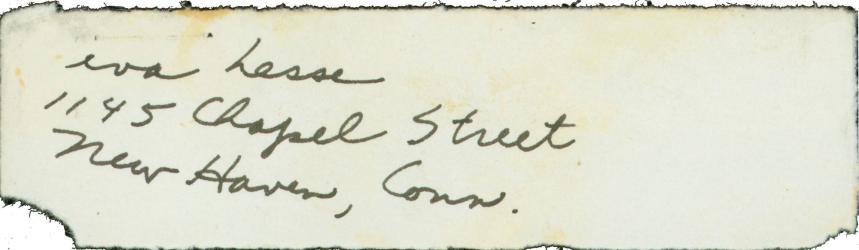 eva hesse
1145 Chapel Street
New Haven, Conn.